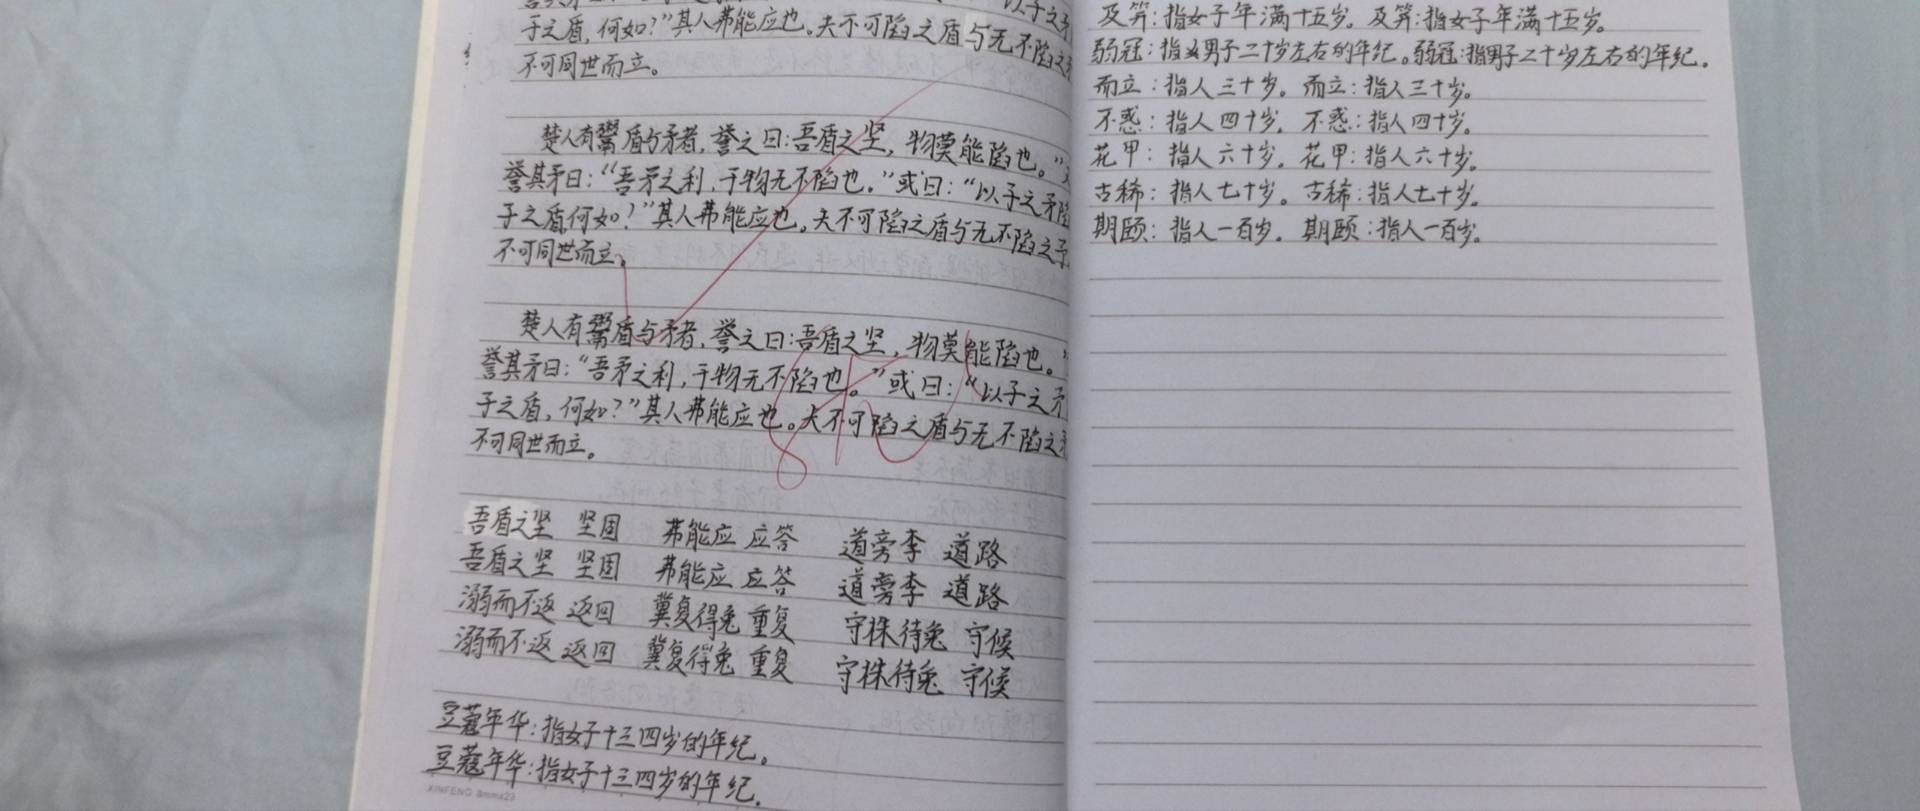 子之盾，何如？”其人弗能应也。夫不可陷之盾与无不陷之
不可同世而立。
楚人有鬻盾与矛者，誉之曰：吾盾之坚，物莫能陷也。”
誉其矛曰：“吾矛之利，于物无不陷也。”或曰：“以子之矛陷
子之盾何如？”其人弗能应也。夫不可陷之盾与无不陷之
不可同世而立。
楚人有鬻盾与矛者，誉之曰：吾盾之坚，物莫能陷也。”
誉其矛曰：“吾矛之利，于物无不陷也。”或曰：“以子之矛
子之盾，何如？”其人弗能应也。夫不可陷之盾与无不陷之
不可同世而立。
吾盾之坚 坚固 弗能应 应答 道旁李 道路
吾盾之坚 坚固 弗能应 应答 道旁李 道路
溺而不返 返回 冀复得兔 重复 守株待兔 守候
溺而不返 返回 冀复得兔 重复 守株待兔 守候
豆蔻年华：指女子十三四岁的年纪。
豆蔻年华：指女子十三四岁的年纪。
XINFENG 8mmx29
及笄：指女子年满十五岁。及笄：指女子年满十五岁。
弱冠：指男子二十岁左右的年纪。弱冠：指男子二十岁左右的年纪。
而立：指人三十岁。而立：指人三十岁。
不惑：指人四十岁。不惑：指人四十岁。
花甲：指人六十岁。花甲：指人六十岁。
古稀：指人七十岁。古稀：指人七十岁。
期颐：指人一百岁。期颐：指人一百岁。